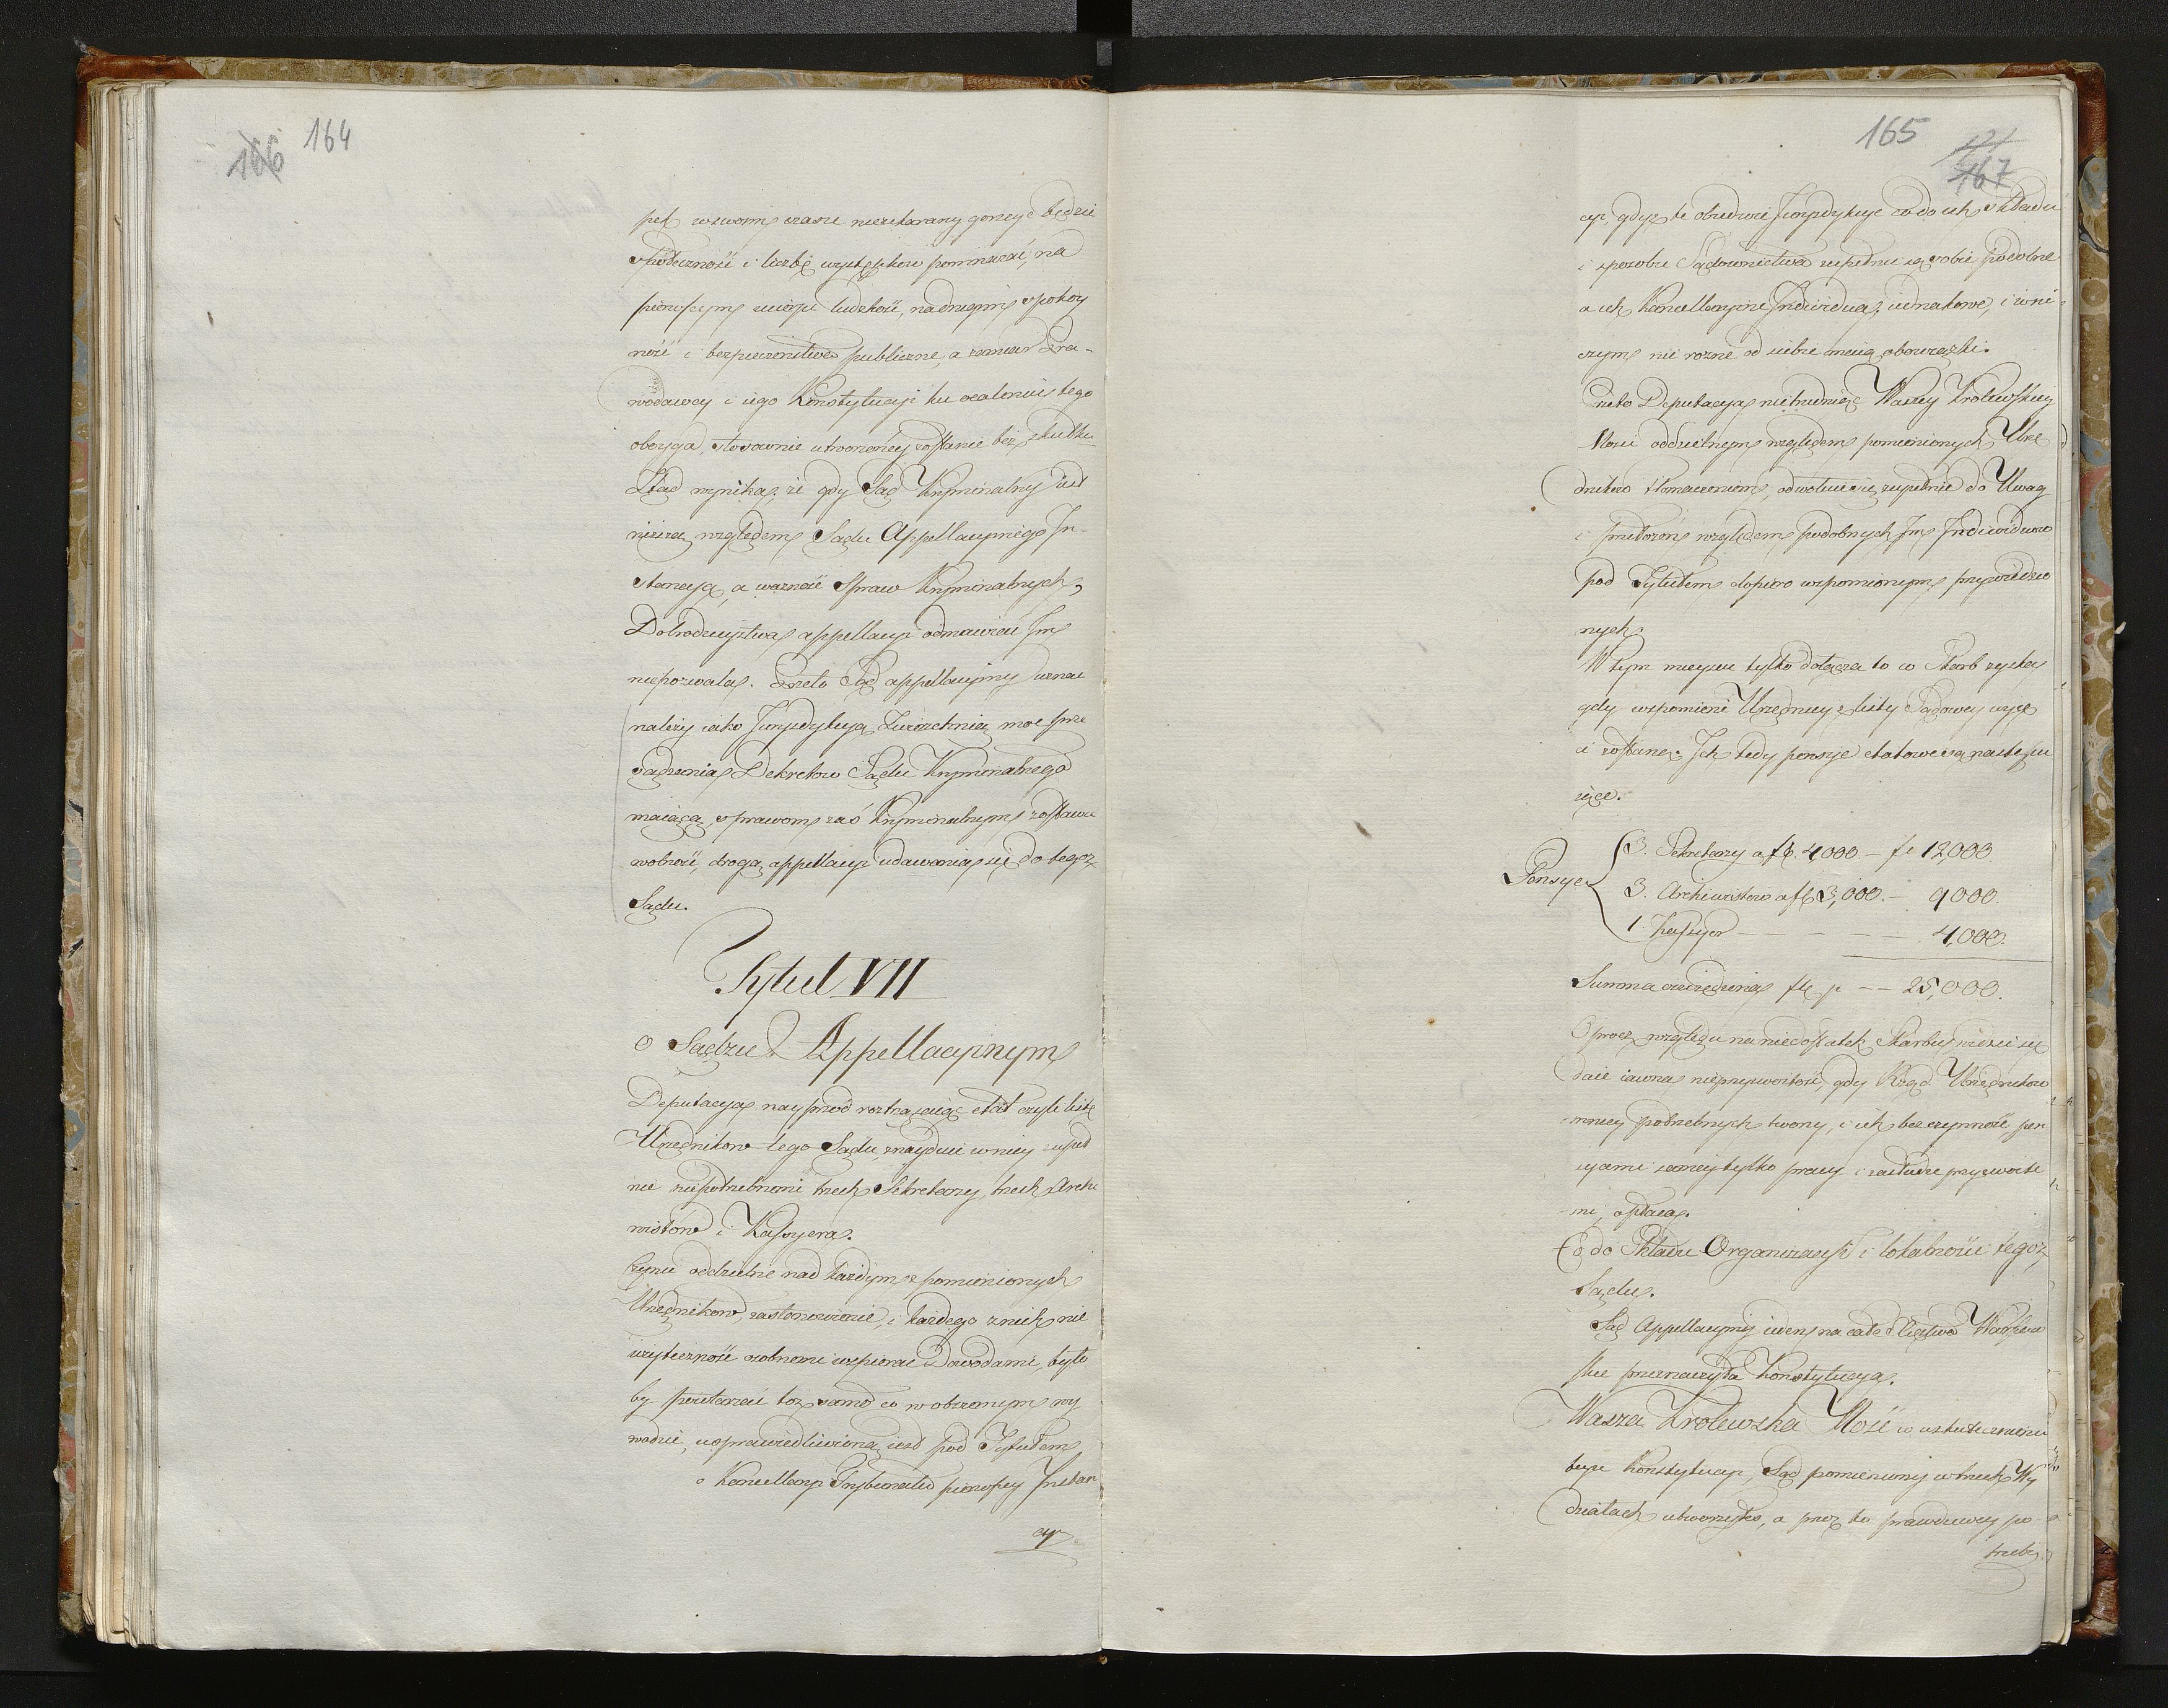 166 164
pek w swoim czasie nieukarany gorszyć będzie
społeczność i liczbę występkow pomnażać, na
pierwszym cierpi ludzkość, na drugim spokoy
ność i bezpieczeństwo publiczne, a zamiar Pra-
wodawcy i iego Konstytucyi ku ocaleniu tego
oboyga, stosownie utworzoney zostanie bez skutku
Ztąd wynika, że gdy Sąd Kryminalny iest
niższą względem Sądu Appellacyinego In-
stancyą, a ważność Spraw Kryminalnych,
Dobrodzieystwa appellacyi odmawiać Im
niepozwala. Przeto Sąd appellacyiny uznać
należy iako Juryzdykcyą Zwierzchnią moc prze
sądzenia Dekretow Sądu Kryminalnego
maiącą, sprawom zaś Kryminalnym zostawić
wolność, drogą appellacyi udawania się do tegoż
Sądu.
Tytuł VII
o Sądzie Appellacyinym
Deputacya nayprzod roztrząsaiąc etat czyli listę
Urzędnikow tego Sądu, znayduie w niey zupeł
nie niepotrzebnemi trzech Sekretarzy, trzech Archi
wistów i Kassyera.
Czynić oddzielne nad każdym z pomienionych
Urzędników, zastanowienie, i każdego z nich nie
użyteczność osobnemi wspierać Dowodami, było
by powtarzać toż samo co w obszernym wy
wodzie, usprawiedliwioną iest pod Tytułem
o Kancellaryi Trybunału pierwszey Instan
cyi
165 121
167
cyi, gdyż te obiedwie Juryzdykcye co do ich składu
i sposobu Sądownictwa zupełnie są sobie podobne
a ich Kancellaryine Individua, iednakowe, i w ni
czym nie rożne od siebie maią obowiązki.
Przeto Deputacya nietrudniąc Waszey Krolewskiey
Mości oddzielnym względem pomienionych Urzę
dnikow tłomaczeniem, odwołuie się zupełnie do Uwag
i przełożeń względem podobnych Im Individuow
pod Tytułem dopiero wspomionym przywiedzio
nych.
W tym mieyscu tylko dołącza to co Skarb zyska
gdy wspomieni Urzędnicy z listy Sądowey wyię
ci zostaną. Ich tedy pensye etatowe są następu
iące.
Pensye
3. Sekretarzy a fl. 4000 — fl 12,000.
3. Archiwistow a fl 3,000. — 9000.
1. Kassyer — — — — — 4,000.
Summa oszczędzenia fl. p — — 25,000.
Oprocz względu na niedostatek Skarbu, widzieć się
daie iawna nieprzyzwoitość, gdy Rząd Urzędnikow
mniey potrzebnych tworzy, i ich bezczynność, pen
syami samey tylko pracy i zasłudze przyzwoite
mi, opłaca.
Co do Składu Organizacyi i lokalności tegoż
Sądu.
Sąd Appellacyiny ieden na całe Xięstwo Warszaw
skie przeznaczyła Konstytucya.
Wasza Krolewska Mość w uskutecznieniu
teyże Konstytucyi, Sąd pomieniony w trzech Wy
działach utworzyłeś, a przez to prawdziwey po
trzebie